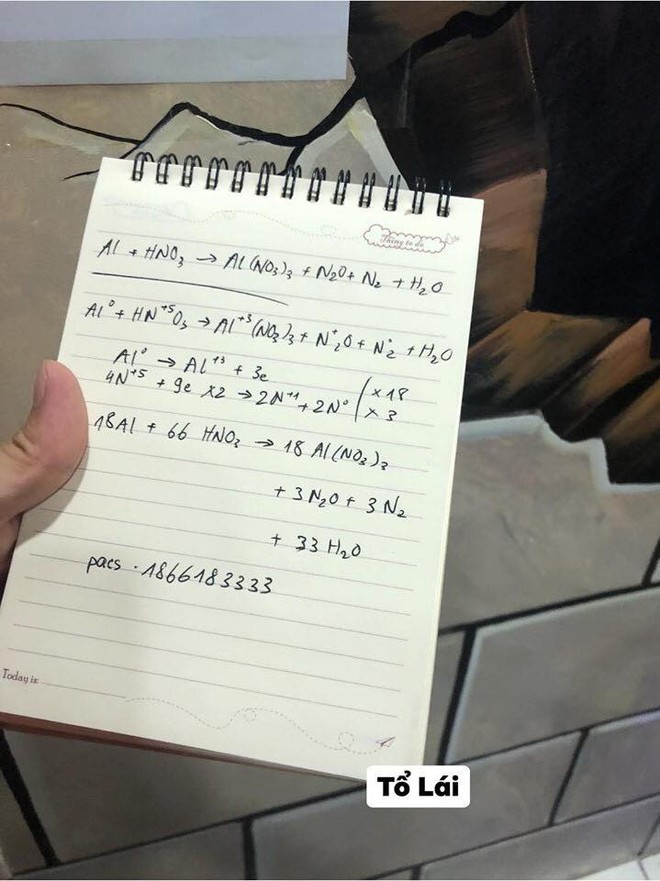 Thing to do
Al + HNO₃ → Al(NO₃)₃ + N₂O + N₂ + H₂O
Al⁰ + HN⁺⁵O₃ → Al⁺³(NO₃)₃ + N⁺₂O + N⁰₂ + H₂O
Al⁰ → Al⁺³ + 3e | x 18
4N⁺⁵ + 9e x2 → 2N⁺¹ + 2N⁰ | x 3
18Al + 66 HNO₃ → 18 Al(NO₃)₃
+ 3N₂O + 3N₂
+ 33 H₂O
pacs . 1866183333
Today is:
Tổ Lái